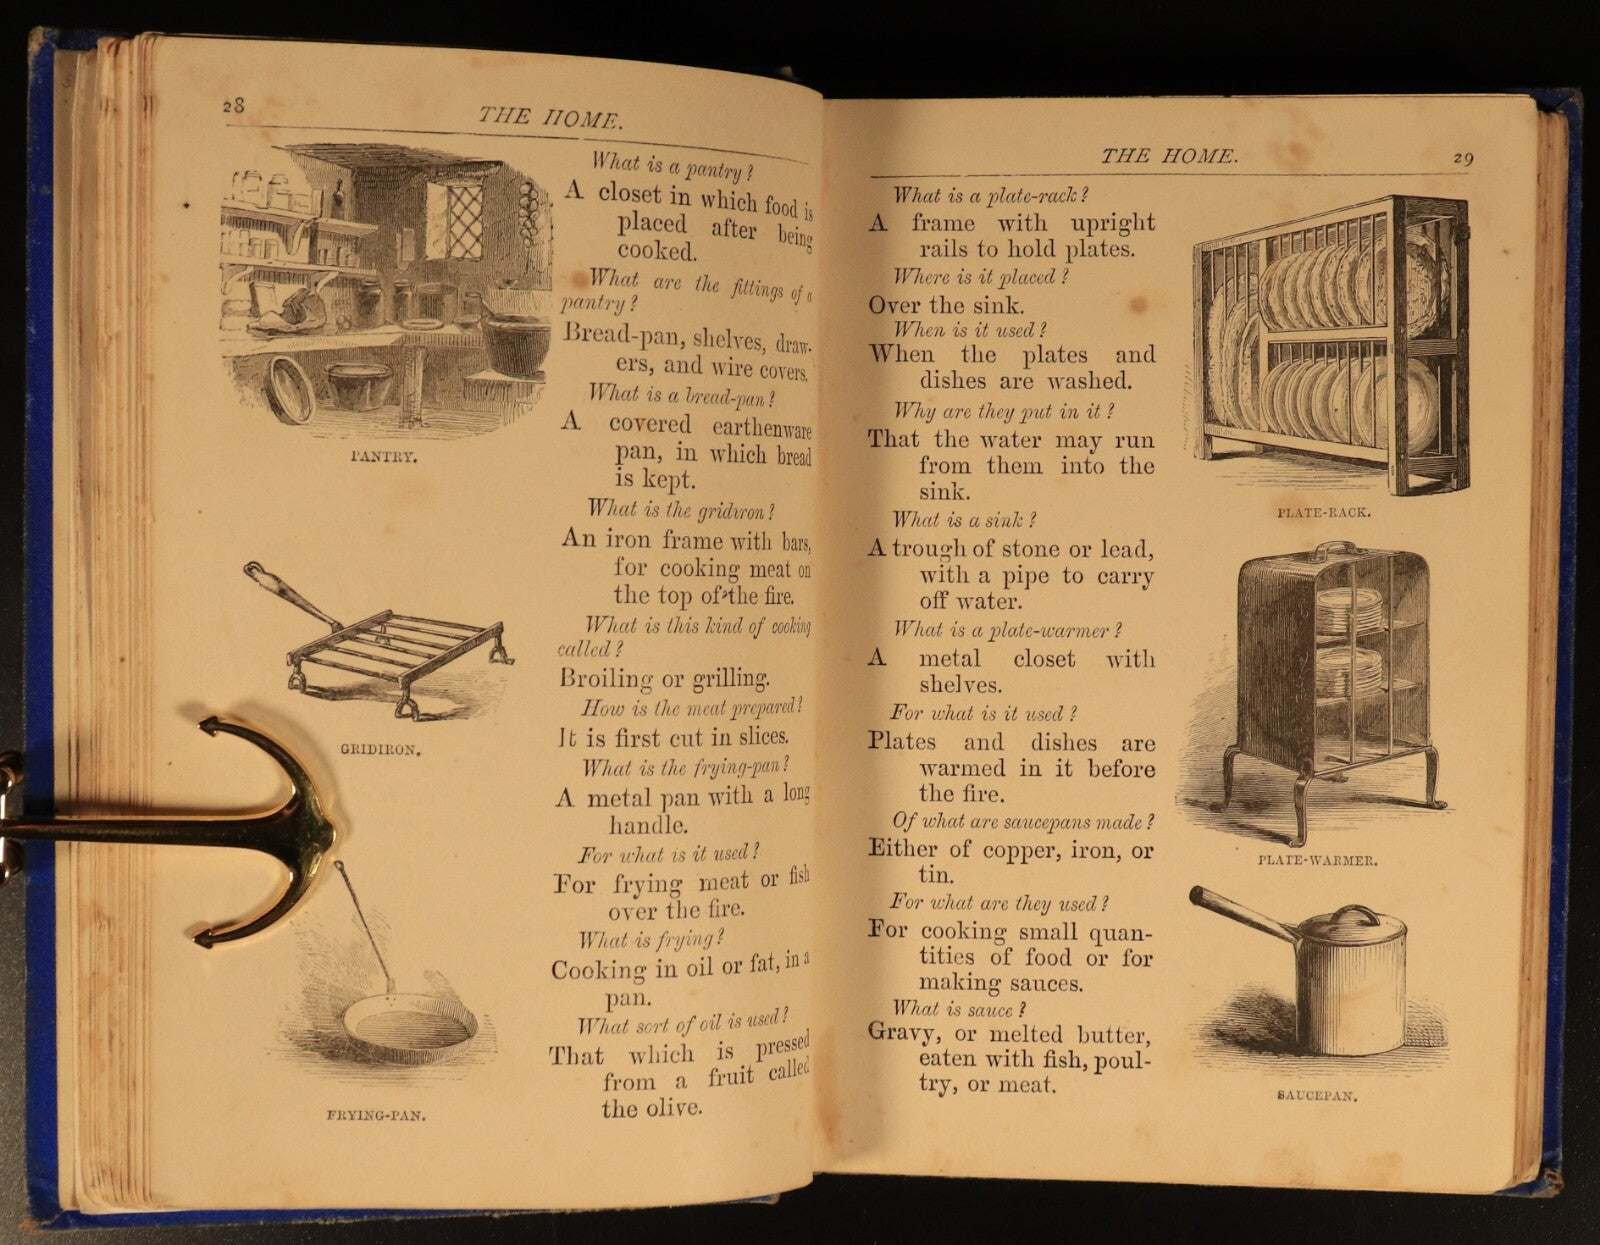 28
THE HOME.
PANTRY.
GRIDIRON.
FRYING-PAN.
What is a pantry?
A closet in which food is
placed after being
cooked.
What are the fittings of a
pantry?
Bread-pan, shelves, draw-
ers, and wire covers.
What is a bread-pan?
A covered earthenware
pan, in which bread
is kept.
What is the gridiron?
An iron frame with bars,
for cooking meat on
the top of the fire.
What is this kind of cooking
called?
Broiling or grilling.
How is the meat prepared?
It is first cut in slices.
What is the frying-pan?
A metal pan with a long
handle.
For what is it used?
For frying meat or fish
over the fire.
What is frying?
Cooking in oil or fat, in a
pan.
What sort of oil is used?
That which is pressed
from a fruit called
the olive.
THE HOME.
29
What is a plate-rack?
A frame with upright
rails to hold plates.
Where is it placed?
Over the sink.
When is it used?
When the plates and
dishes are washed.
Why are they put in it?
That the water may run
from them into the
sink.
What is a sink?
A trough of stone or lead,
with a pipe to carry
off water.
What is a plate-warmer?
A metal closet with
shelves.
For what is it used?
Plates and dishes are
warmed in it before
the fire.
Of what are saucepans made?
Either of copper, iron, or
tin.
For what are they used?
For cooking small quan-
tities of food or for
making sauces.
What is sauce?
Gravy, or melted butter,
eaten with fish, poul-
try, or meat.
PLATE-RACK.
PLATE-WARMER.
SAUCEPAN.